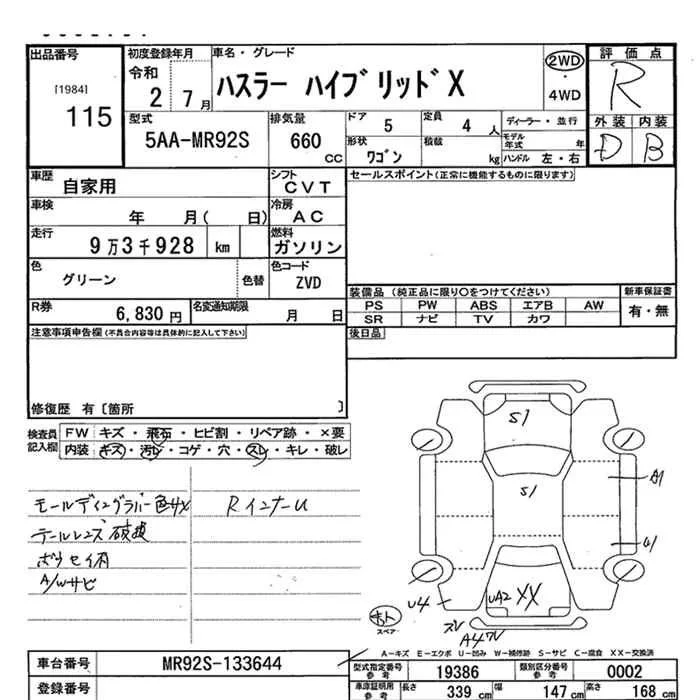 出品番号
[1984]
115
初度登録年月
令和
2 7月
車名・グレード
ハスラー ハイブリッドX
2WD
・
4WD
評価点
R
外装 内装
D B
型式
5AA-MR92S
排気量
660 CC
ドア 5
定員 4 人
ディーラー・並行
形状 ワゴン
積載 kg
モデル年式 年
ハンドル 左・右
車歴 自家用
シフト CVT
セールスポイント(正常に機能するものに限ります)
車検 年 月( 日)
冷房 AC
走行 9万3千928 km
燃料 ガソリン
色 グリーン 色替
色コード ZVD
R券 6,830円
名変通知期限 月 日
装備品 (純正品に限り○をつけてください)
新車保証書
PS PW ABS エアB AW
有・無
SR ナビ TV カワ
後日品
注意事項申告欄(不具合内容等は具体的に記入して下さい)
修復歴 有〔箇所 〕
検査員記入欄
FW キズ・飛石・ヒビ割・リペア跡・×要
内装 キズ・汚レ・コゲ・穴・スレ・キレ・破レ
モールディングラバー色サメ
テールレンズ破損
ボウセイ有
A/Wサビ
RインナーU
S1
S1
A1
U1
UA2
XX
U4
スペア
A4
車台番号 MR92S-133644
登録番号
A－キズ E－エクボ U－凹み W－補修跡 S－サビ C－腐食 XX－交換済
型式指定番号 参考 19386
類別区分番号 参考 0002
車庫証明用 参考 長さ 339 cm 幅 147 cm 高さ 168 cm